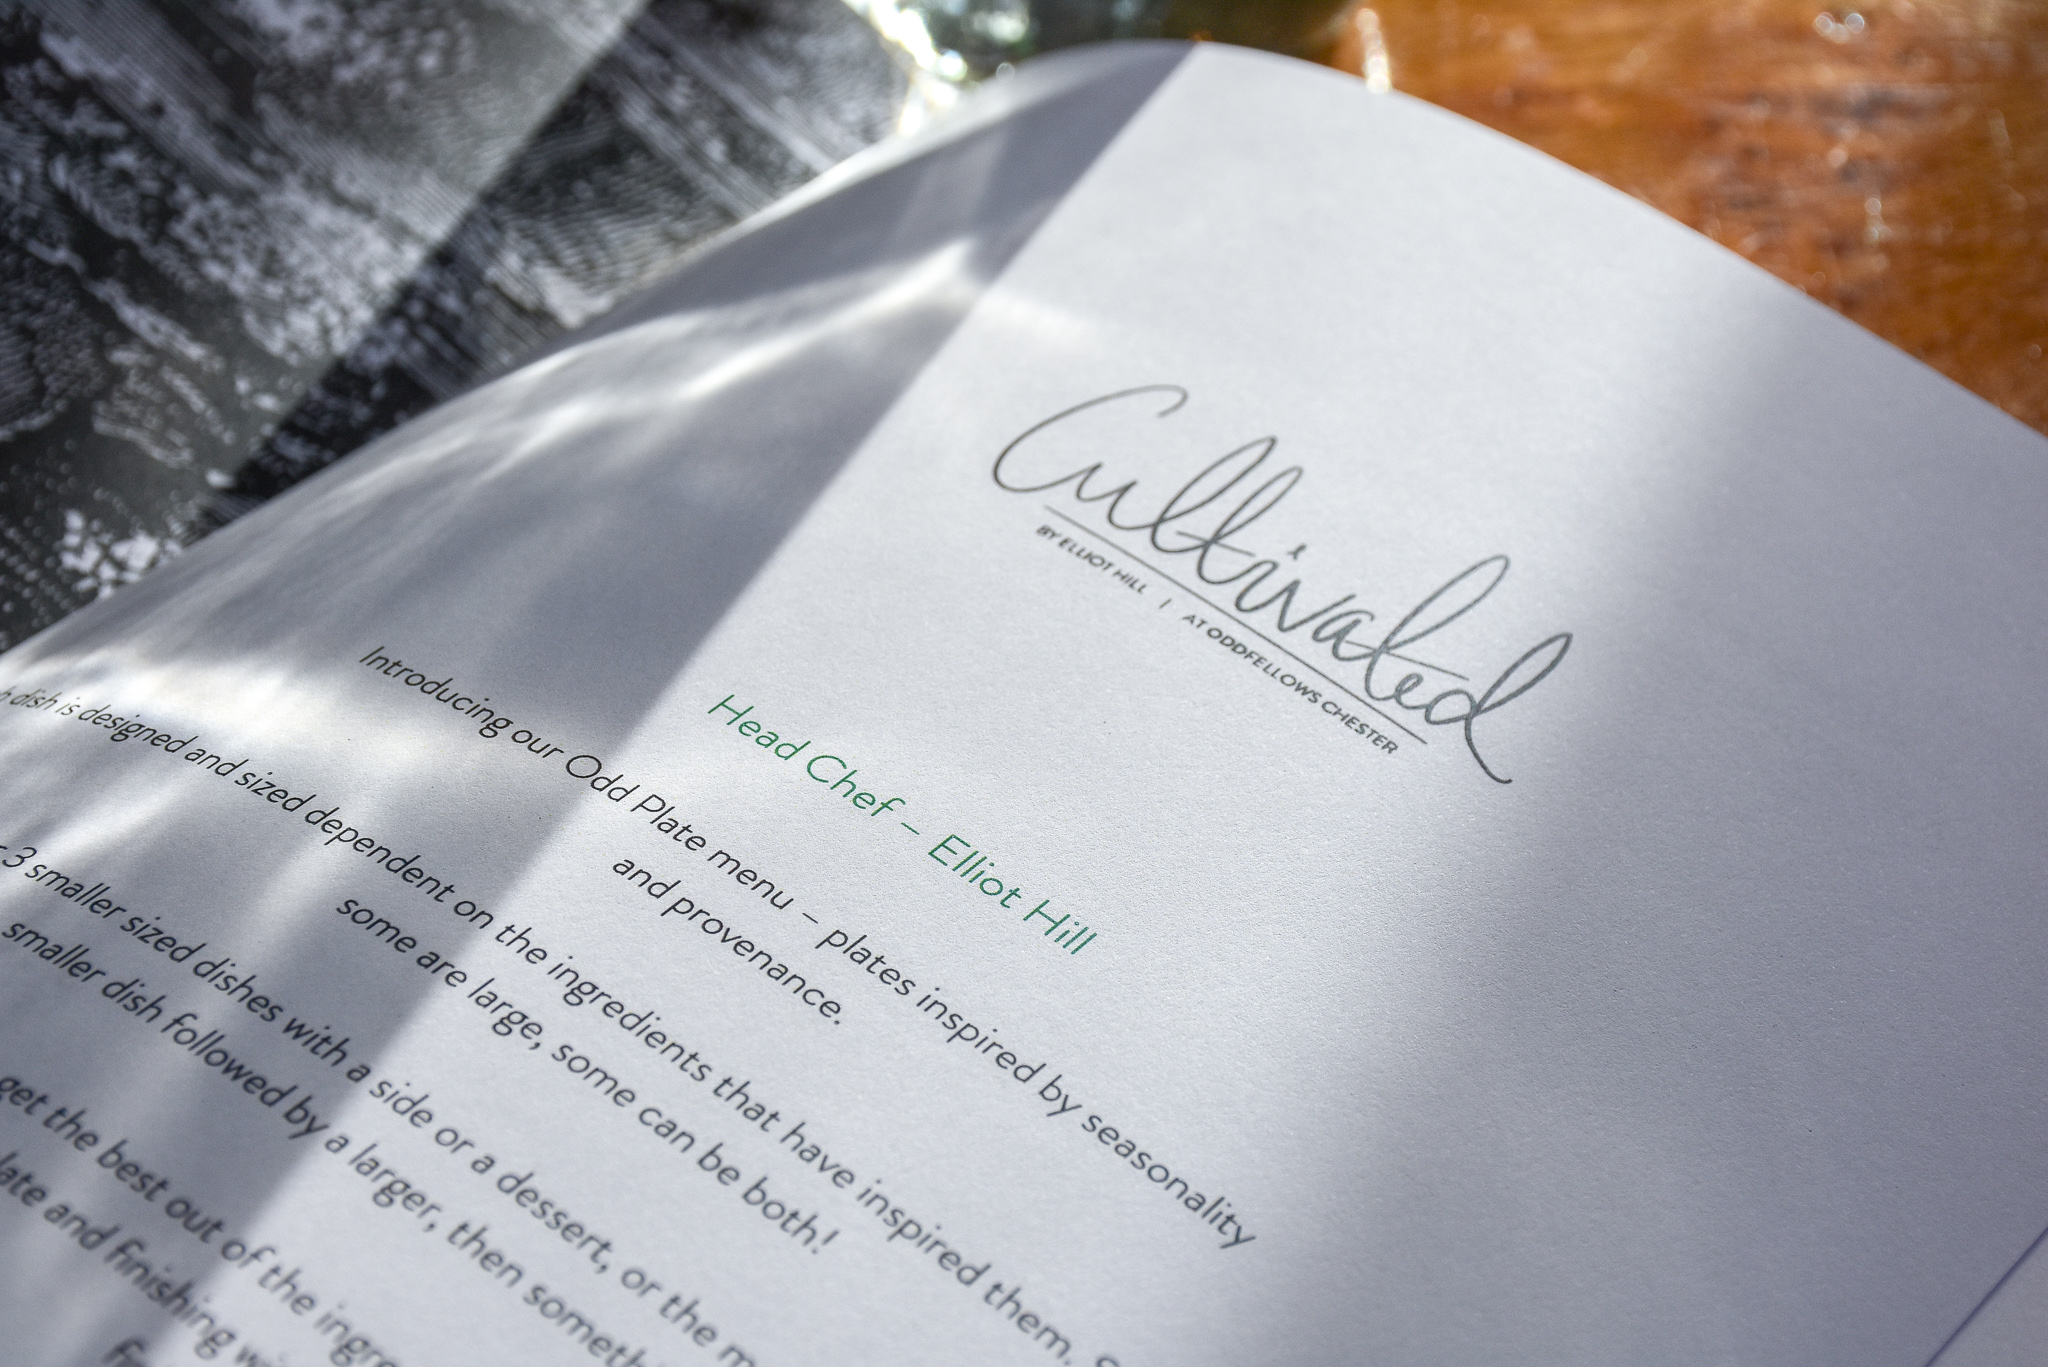 Cultivated
BY ELLIOT HILL | AT ODDFELLOWS CHESTER
Head Chef – Elliot Hill
Introducing our Odd Plate menu – plates inspired by seasonality
and provenance.
dish is designed and sized dependent on the ingredients that have inspired them.
some are large, some can be both!
3 smaller sized dishes with a side or a dessert, or the
smaller dish followed by a larger, then
get the best out of the
and finishing